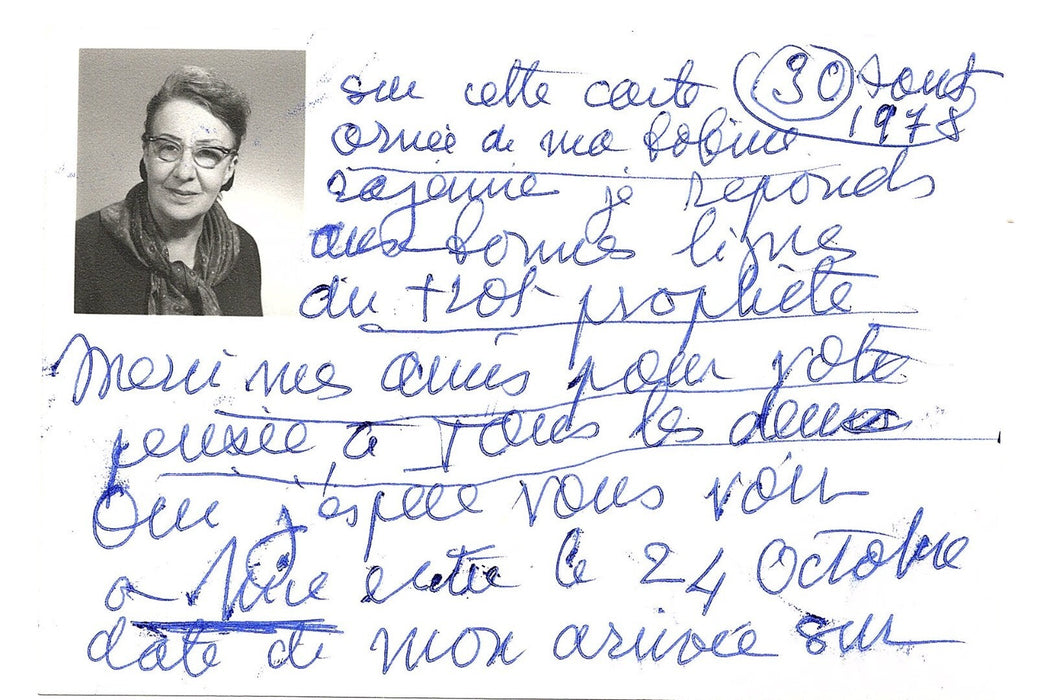 sur cette carte 30 aout
1978
ornée de ma bobine
je reponds
aux bonnes lignes
du trot prophète
Merci mes amis pour votre
pensée à tous les deux
Oui j'espère vous voir
a Nice entre le 24 Octobre
date de mon arrivée sur